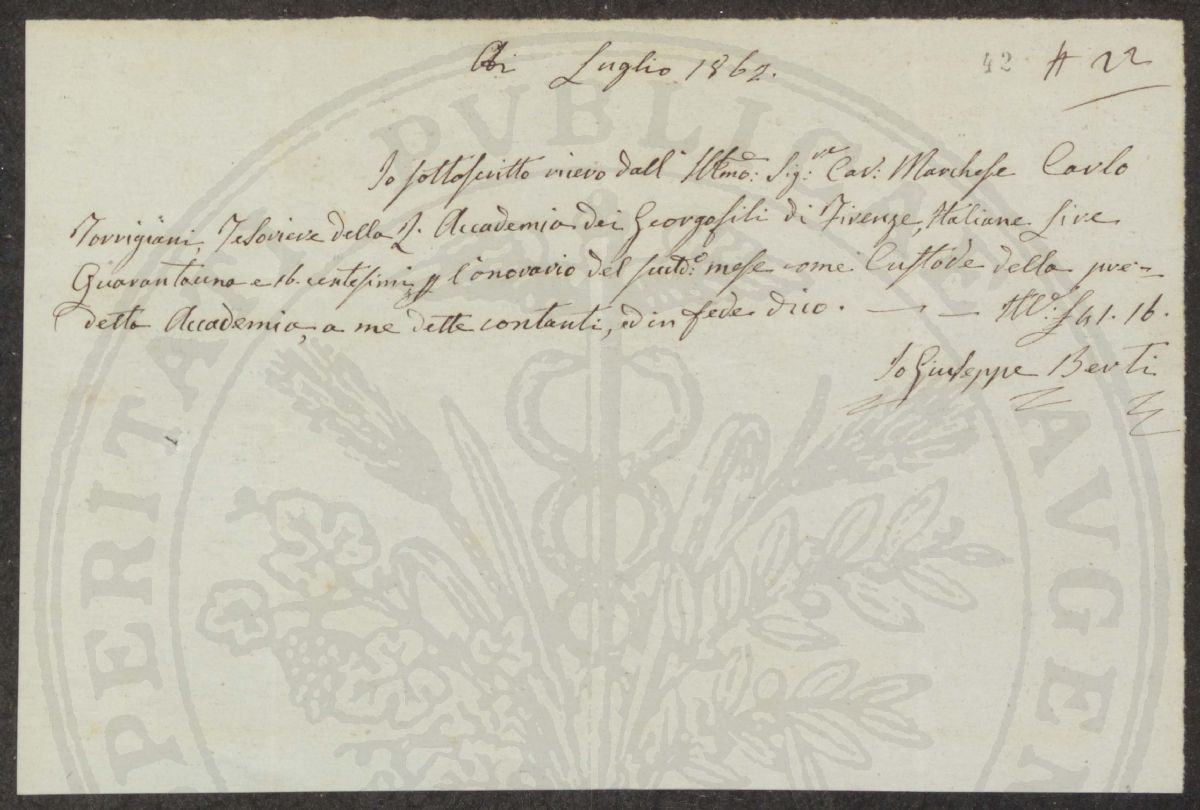 Adi Luglio 1862.
42 # 22
Io sottoscritto ricevo dall' Illmo: Sig:re Cav: Marchese Carlo
Torrigiani, Tesoriere della R. Accademia dei Georgofili di Firenze, Italiane Lire
Quarantauna e 16. centesimi p l'onorario del sudd:o mese come Custode della pre-
detta Accademia, a me dette contanti, ed in fede dico. — — £ 41. 16.
Io Giuseppe Berti
PERITATI PUBLICAE AUGEN